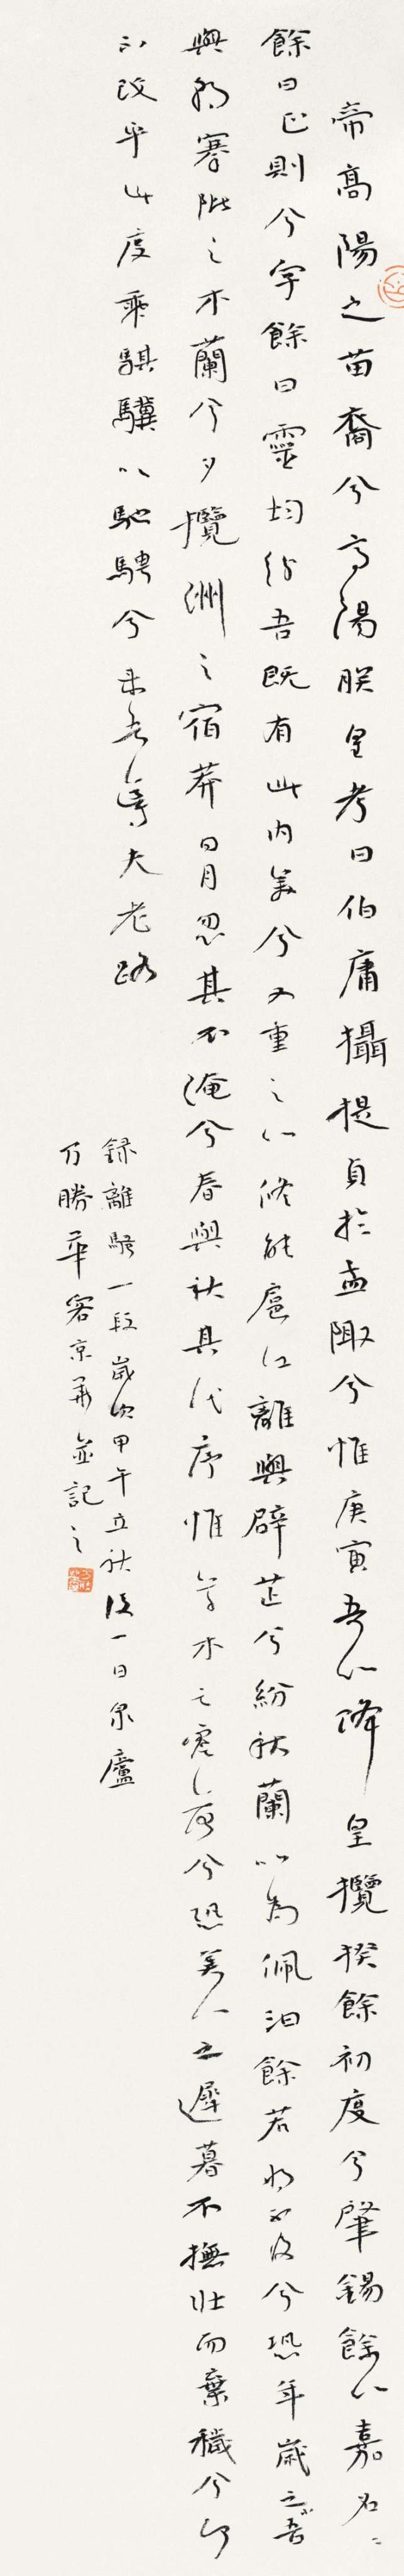 帝高陽之苗裔兮高陽朕皇考曰伯庸攝提貞於孟陬兮惟庚寅吾以降皇攬揆餘初度兮肇錫餘以嘉名名
餘曰正則兮字餘曰靈均紛吾既有此內美兮又重之以修能扈江離與辟芷兮紛秋蘭以為佩汩餘若將不及兮恐年歲之不吾
與朝搴阰之木蘭兮夕攬洲之宿莽日月忽其不淹兮春與秋其代序惟草木之零落兮恐美人之遲暮不撫壯而棄穢兮何
不改乎此度乘騏驥以馳騁兮來吾導夫老路
錄離騷一段歲次甲午立秋後一日泉廬
方勝華客京華並記之